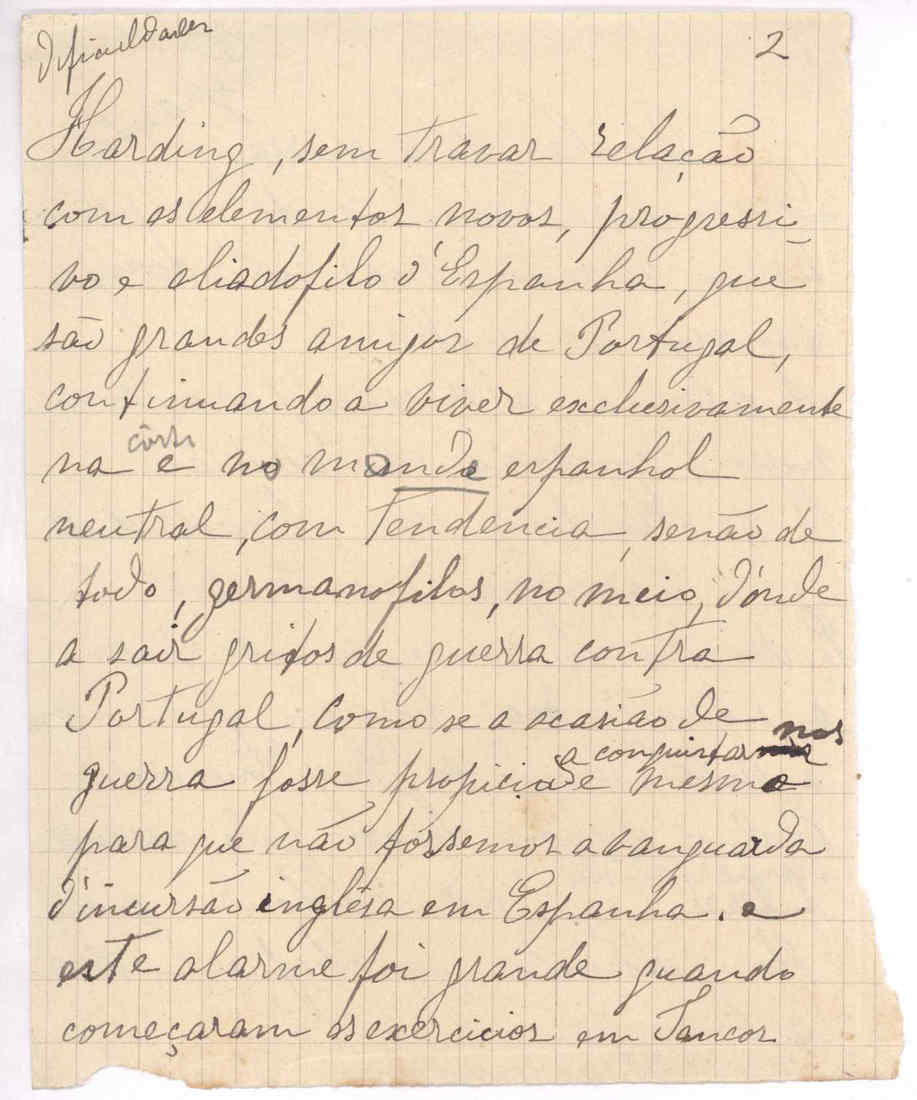 dificuldades
2
Harding, sem travar relação
com os elementos novos, progressi
vo e aliadofilo d'Espanha, que
são grandes amigos de Portugal,
continuando a viver exclusivamente
na côrte e no mundo espanhol
neutral, com tendencia, senão de
todo, germanofilos, no meio, d'onde
a sair gritos de guerra contra
Portugal, como se a ocasião de
guerra fosse propicia a conquistar-nos e mesmo
para que não fôssemos a vanguarda
d'incursão inglêsa em Espanha. e
este alarme foi grande quando
começaram os exercicios em Tancos